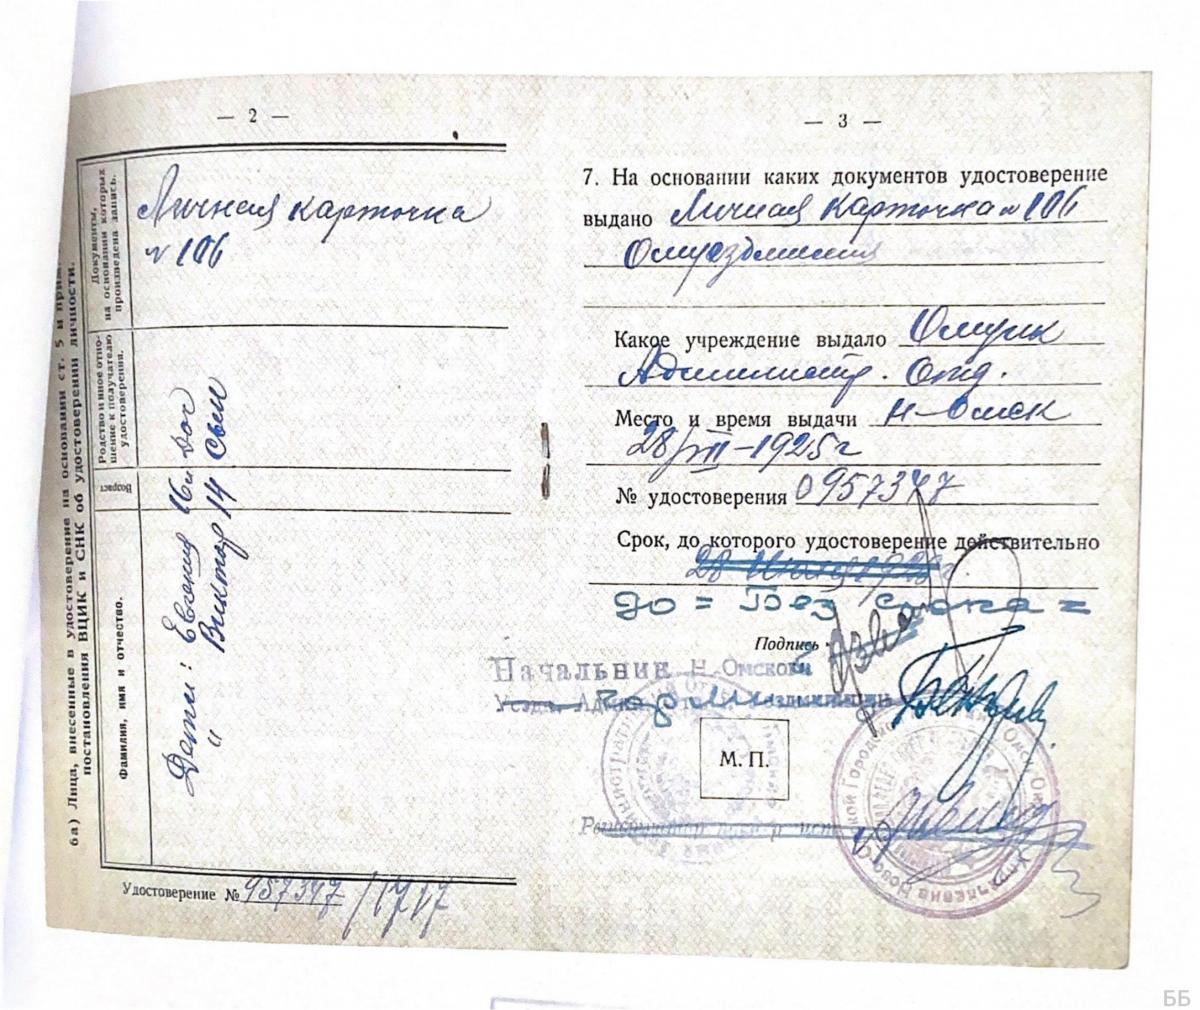 — 2 —
6а) Лица, внесенные в удостоверение на основании ст. 5 и прим.
постановления ВЦИК и СНК об удостоверении личности.
Документы,
на основании которых
произведена запись.
Личная карточка
№ 106
Родство и иное отно-
шение к получателю
удостоверения.
Возраст
Фамилия, имя и отчество.
Дети: Евгения 16 л доч
и Виктор 14 сын
Удостоверение № 957347/1717
— 3 —
7. На основании каких документов удостоверение
выдано Личная карточка № 106
Какое учреждение выдало Омуик
Администр. Отд.
Место и время выдачи Н-Омск
28/VII-1925 г
№ удостоверения 0957347
Срок, до которого удостоверение действительно
28 1928 г.
до = Без срока =
Подпись
Начальник Н. Омского
М. П.
ББ